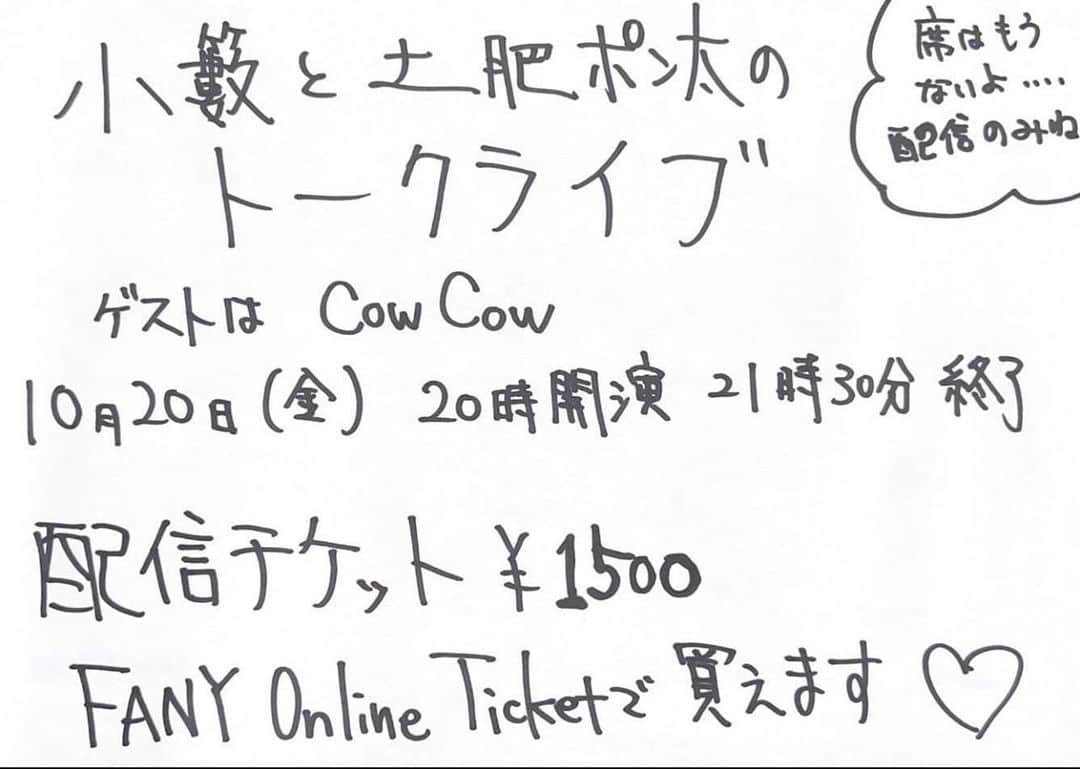 小籔と土肥ポン太の
トークライブ
席はもう
ないよ....
配信のみね
ゲストは Cow Cow
10月20日(金) 20時開演 21時30分 終了
配信チケット ¥1500
FANY Online Ticketで買えます♡